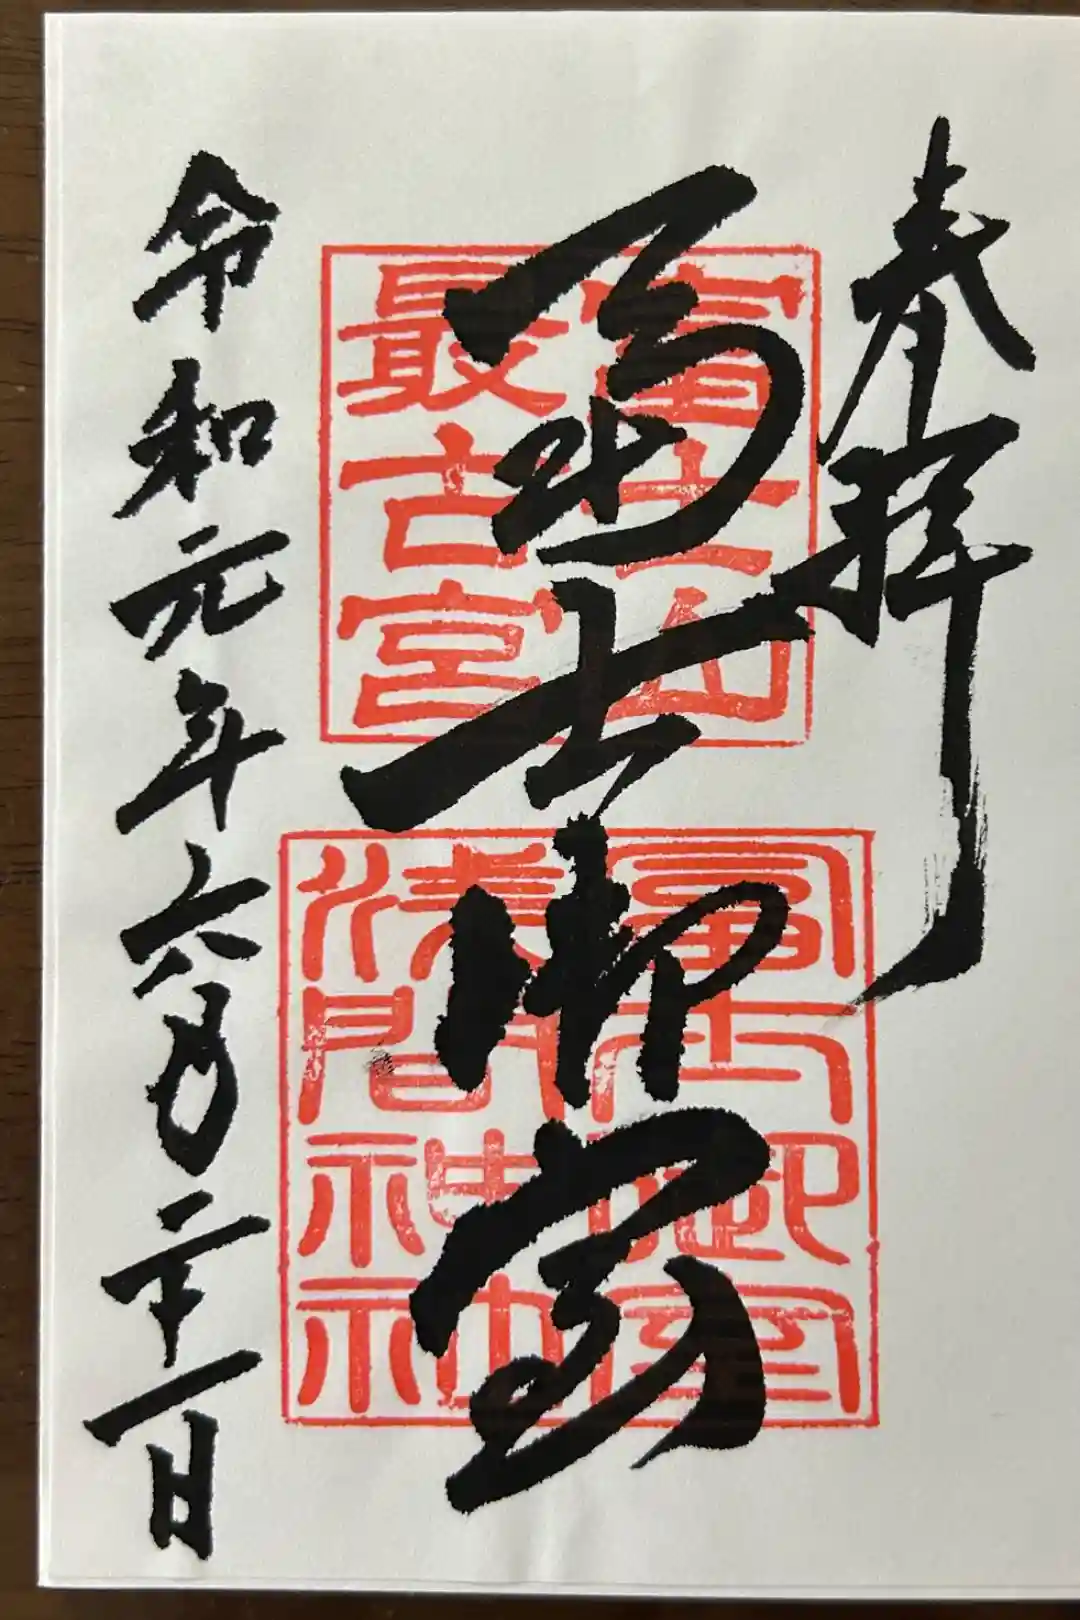 奉拝
富士山
最古宮
冨士御室
浅間神社
冨士御室
令和元年六月二十一日